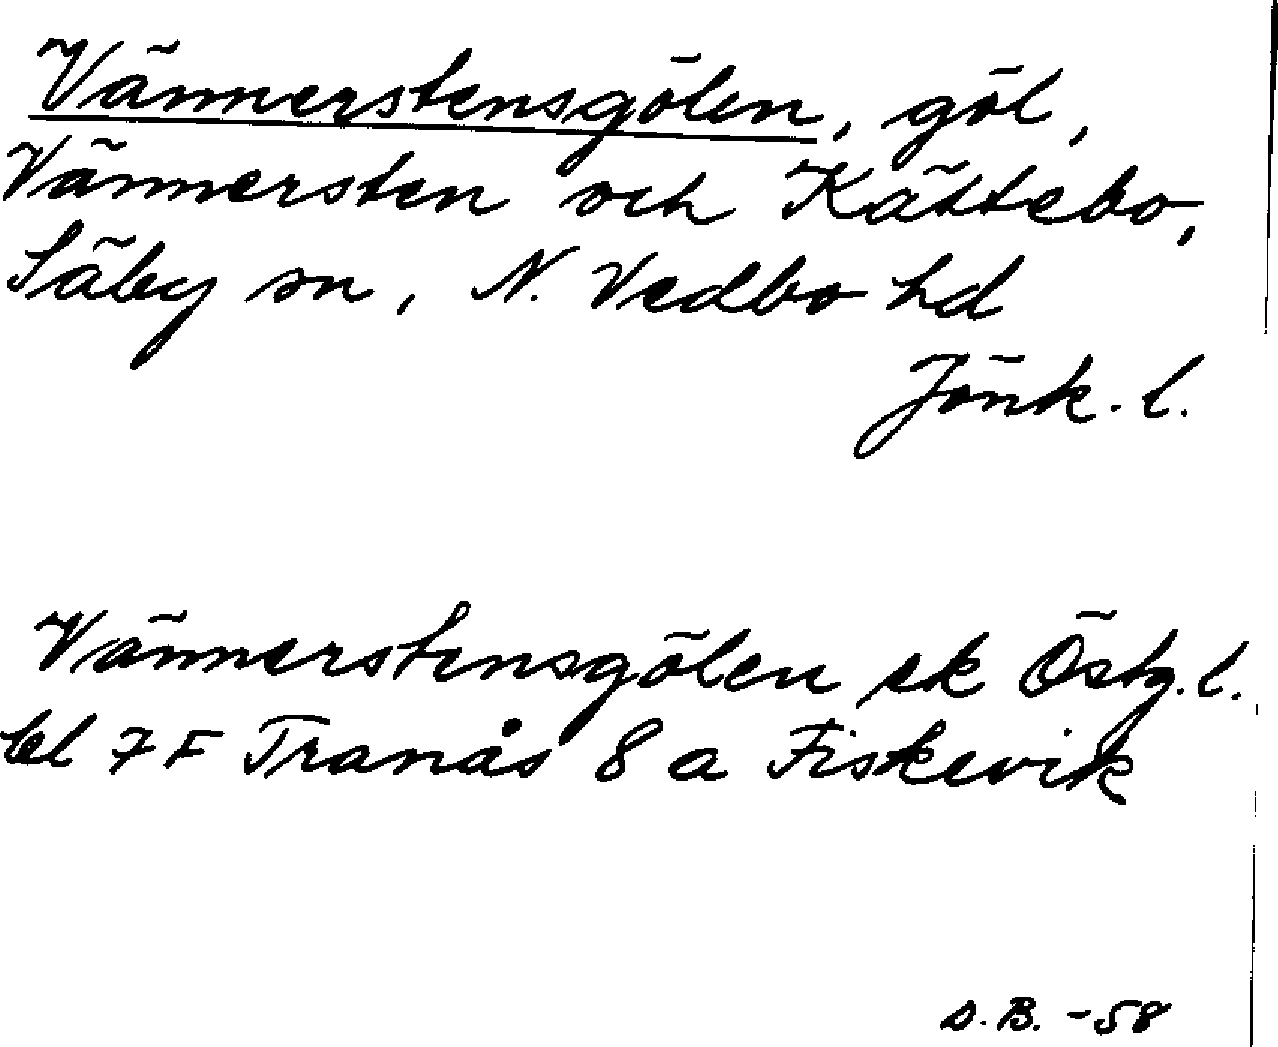 Vännerstensgölen, göl,
Vännersten och Kättebo,
Säby sn, N. Vedbo hd
Jönk. l.
Vännerstensgölen ek Östg. l.
bl 7 F Tranås 8 a Fiskevik
D. B. -58